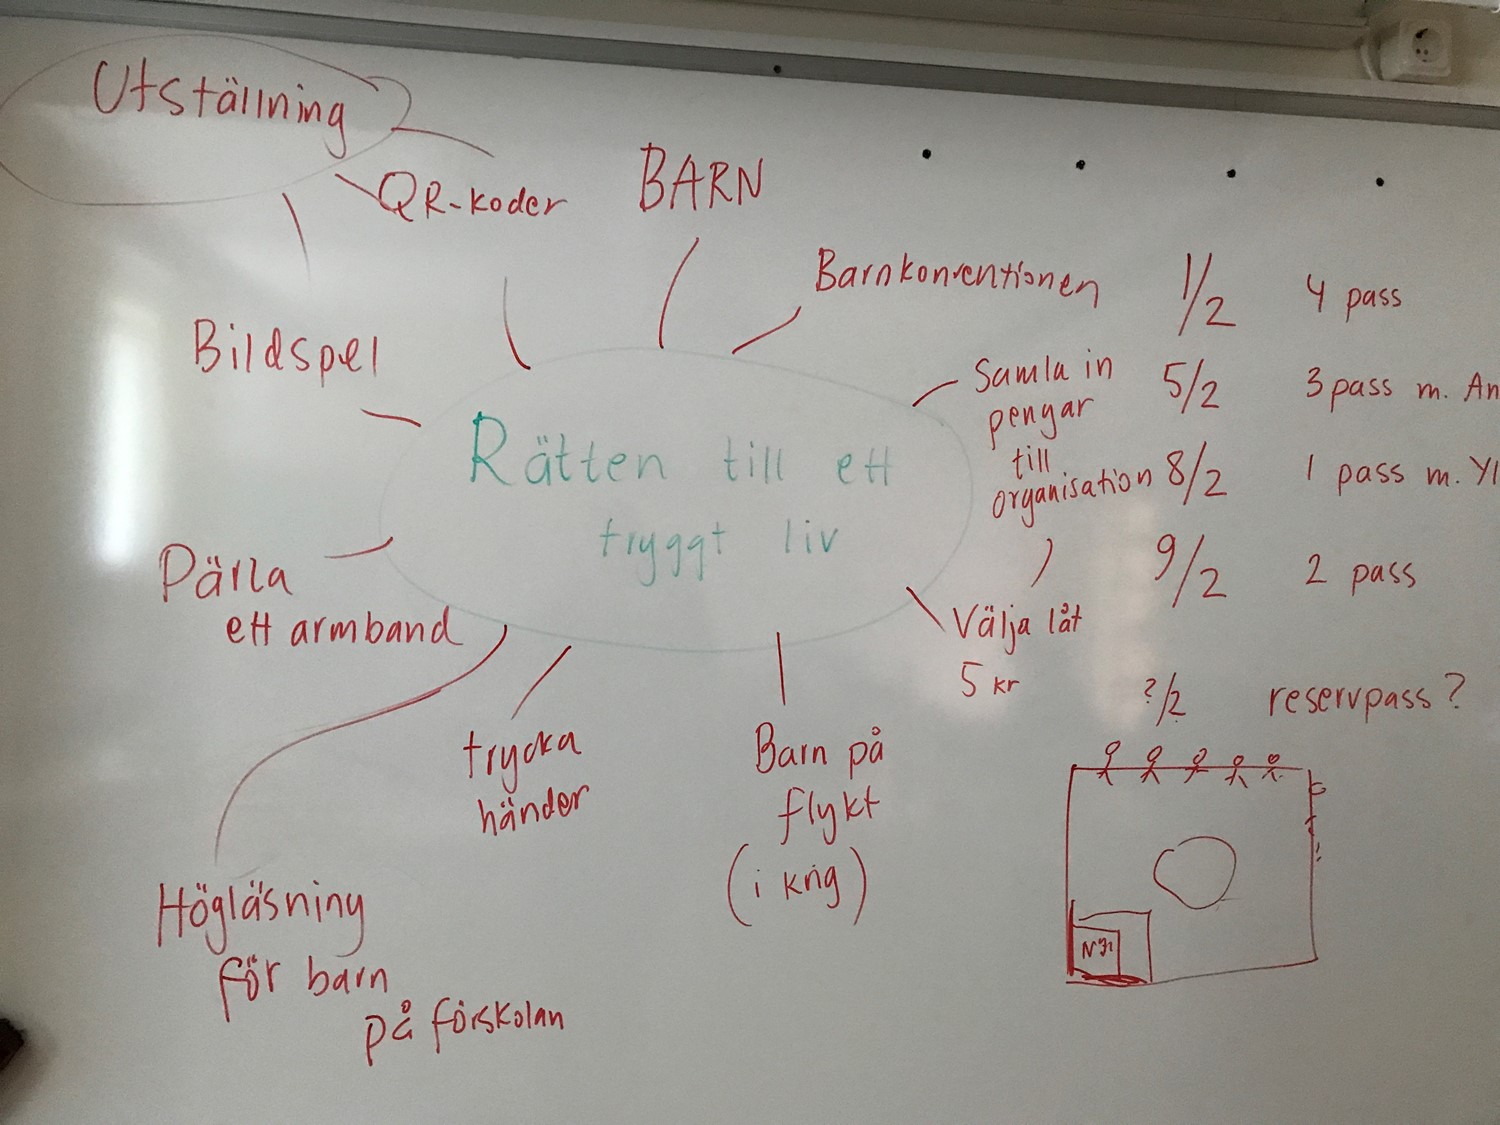 Utställning
QR-koder
BARN
Barnkonventionen
Bildspel
Rätten till ett
tryggt liv
Samla in
pengar
till
organisation
Välja låt
5 kr
Pärla
ett armband
trycka
händer
Barn på
flykt
(i krig)
Högläsning
för barn
på förskolan
1/2 4 pass
5/2 3 pass m. An
8/2 1 pass m. Yl
9/2 2 pass
?/2 reservpass?